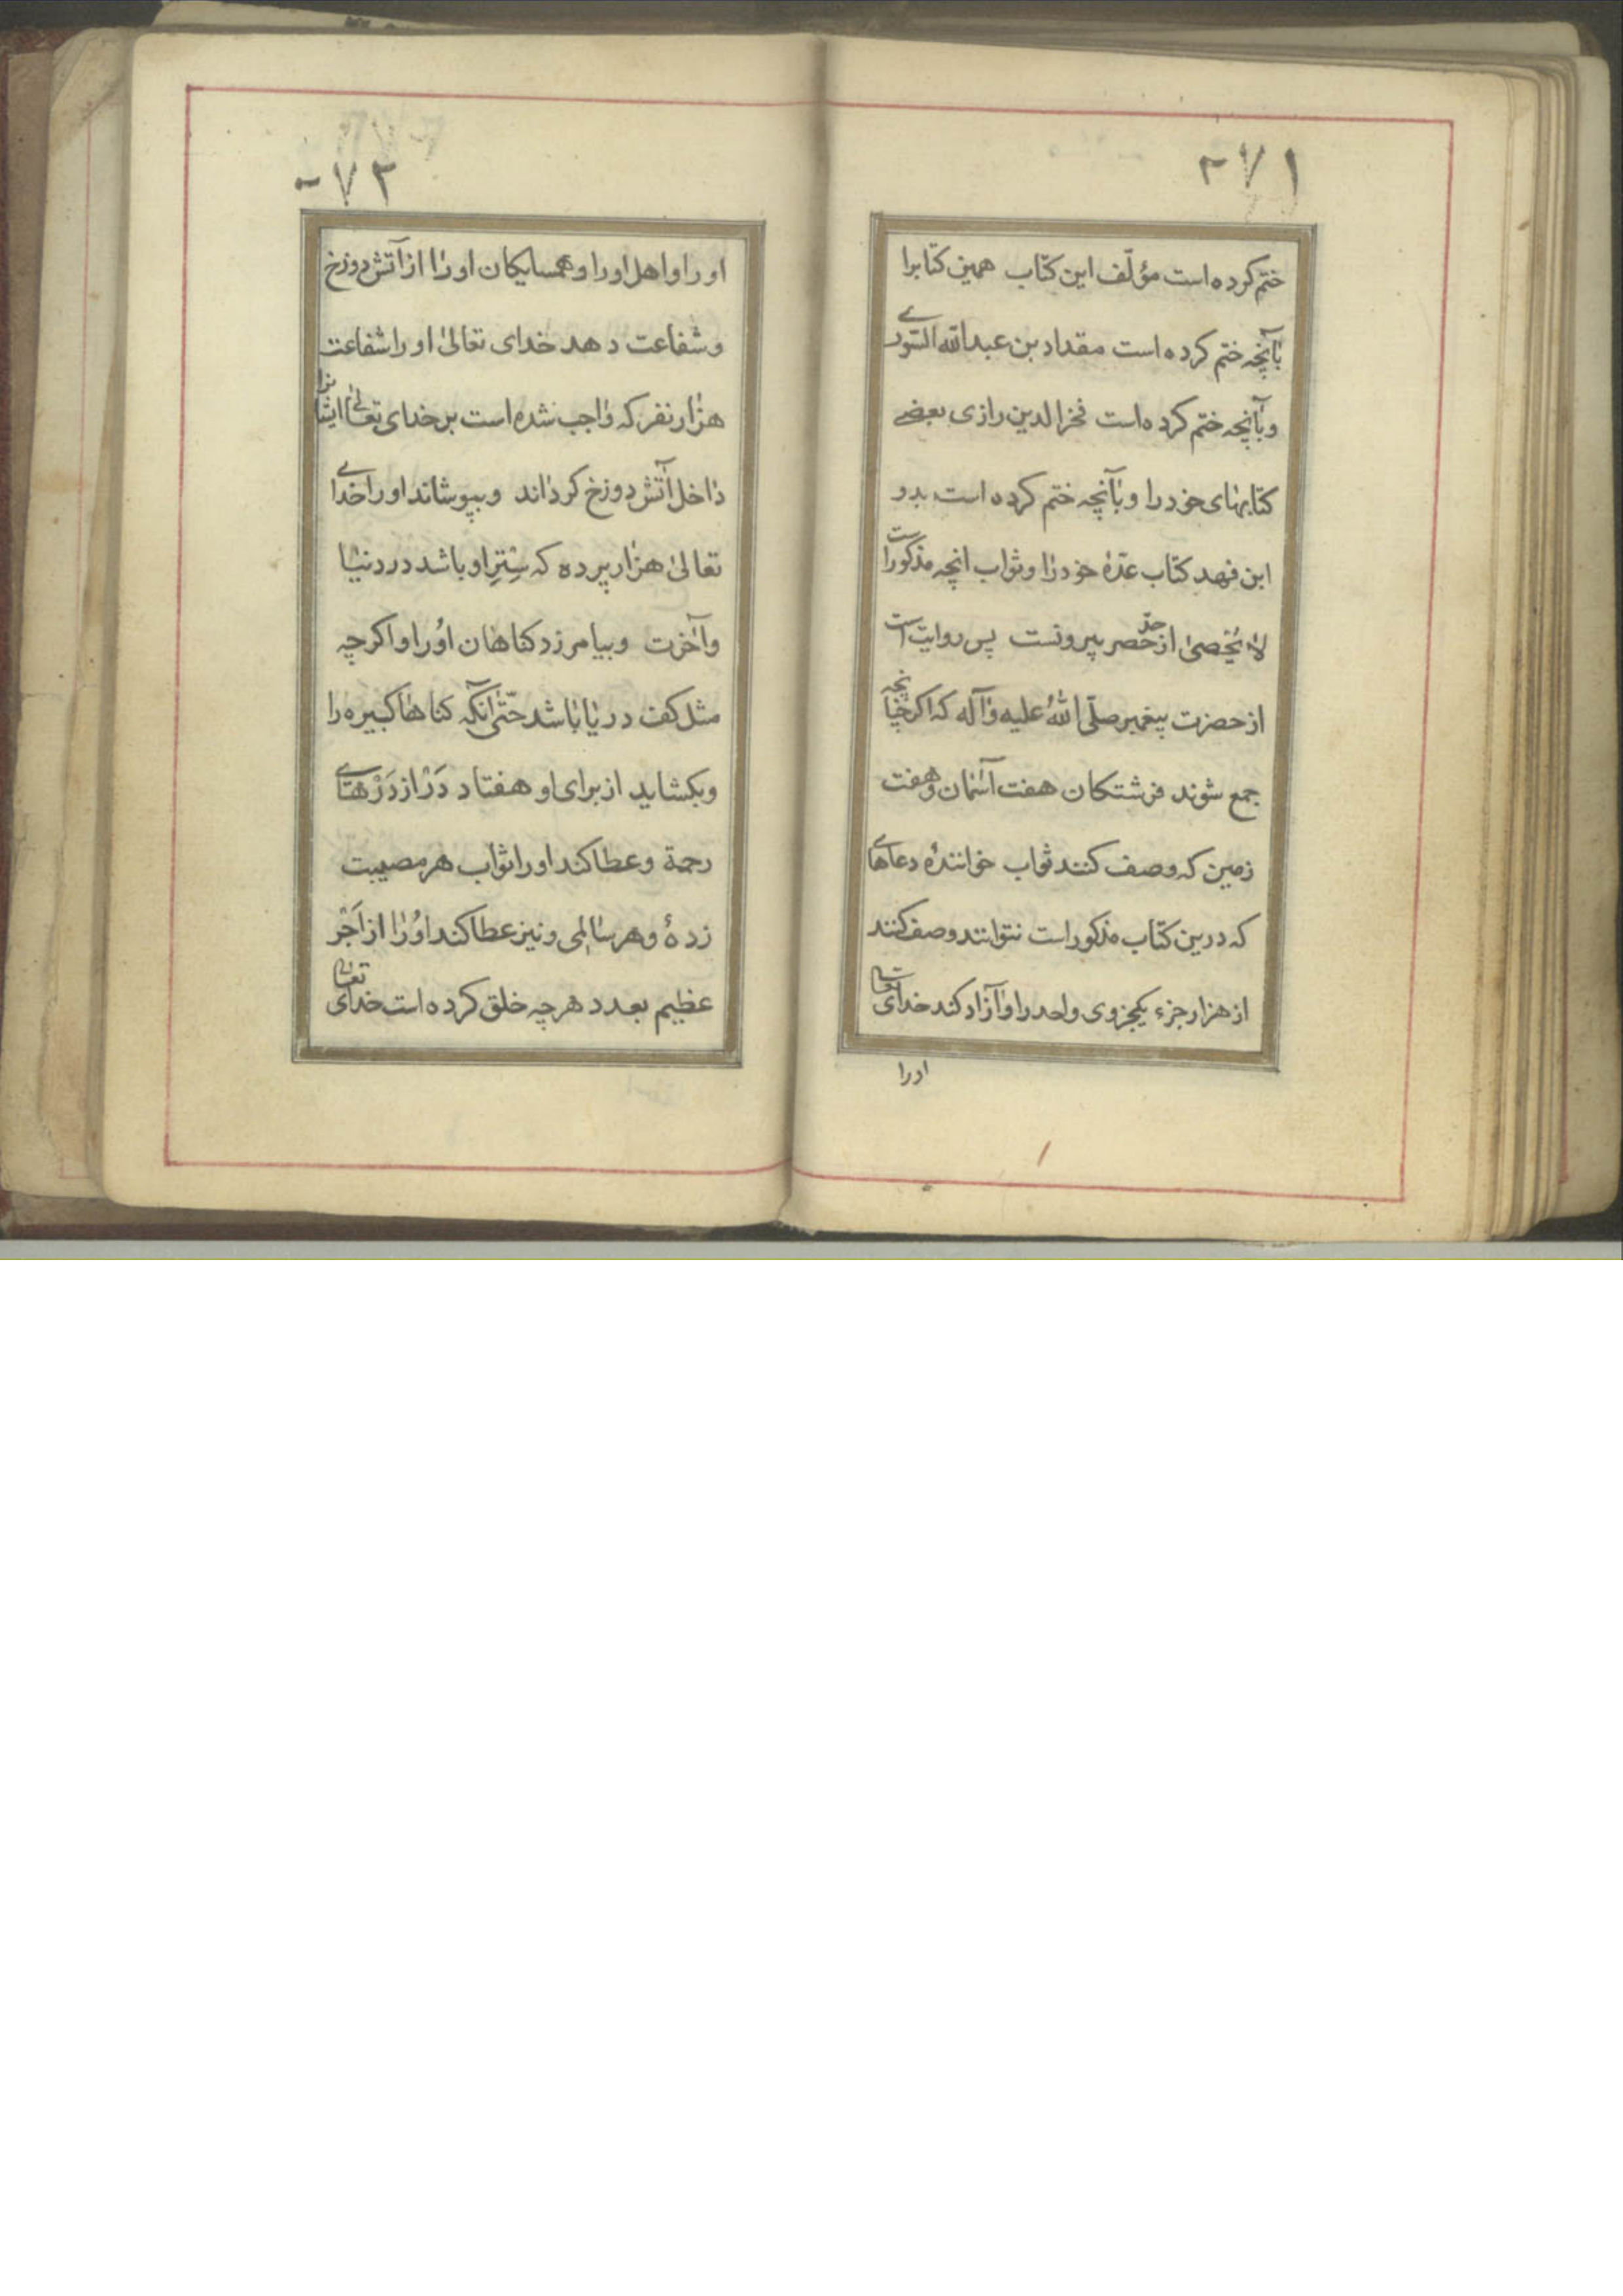 ۲۷۱
ختم کرده است مؤلّف این کتاب همین کتابرا
بآنچه ختم کرده است مقداد بن عبدالله السّوری
وبآنچه ختم کرده است فخرالدین رازی بعضے
کتابهای خودرا وبآنچه ختم کرده است بدو
ابن فهد کتاب عدّهٔ خودرا وثواب انچه مذکوراست
لا یُحْصیٰ از حدّ حصر بیرونست پس روایت است
از حضرت پیغمبر صلّی اللهُ علیه وآله که اکر چنانچه
جمع شوند فرشتکان هفت آسمان وهفت
زمین که وصف کنند ثواب خوانندهٔ دعاهای
که درین کتاب مذکور است نتوانند وصف کنند
از هزار جزء یکجزوی واحد را وآزاد کند خدای تعالی
اورا
۲۷۲
اورا واهل اورا وهمسایکان اورا از آتش دوزخ
وشفاعت دهد خدای تعالیٰ اورا شفاعت
هزار نفر که واجب شده است بر خدای تعالیٰ ایشانرا
داخل آتش دوزخ کرداند وبپوشاند اورا خدای
تعالیٰ هزار پرده که سِتِرِ او باشد در دنیا
وآخرت وبیامرزد کناهان اوُرا واکرچه
مثل کف دریا باشد حتّی آنکه کناها کبیره را
وبکشاید از برای او هفتاد دَرْ از دَرْهای
رحمة وعطا کند اورا ثواب هر مصیبت
زدهٔ وهر سالمی ونیز عطا کند اوُرا از اَجْر
عظیم بعدد هرچه خلق کرده است خدای تعالی